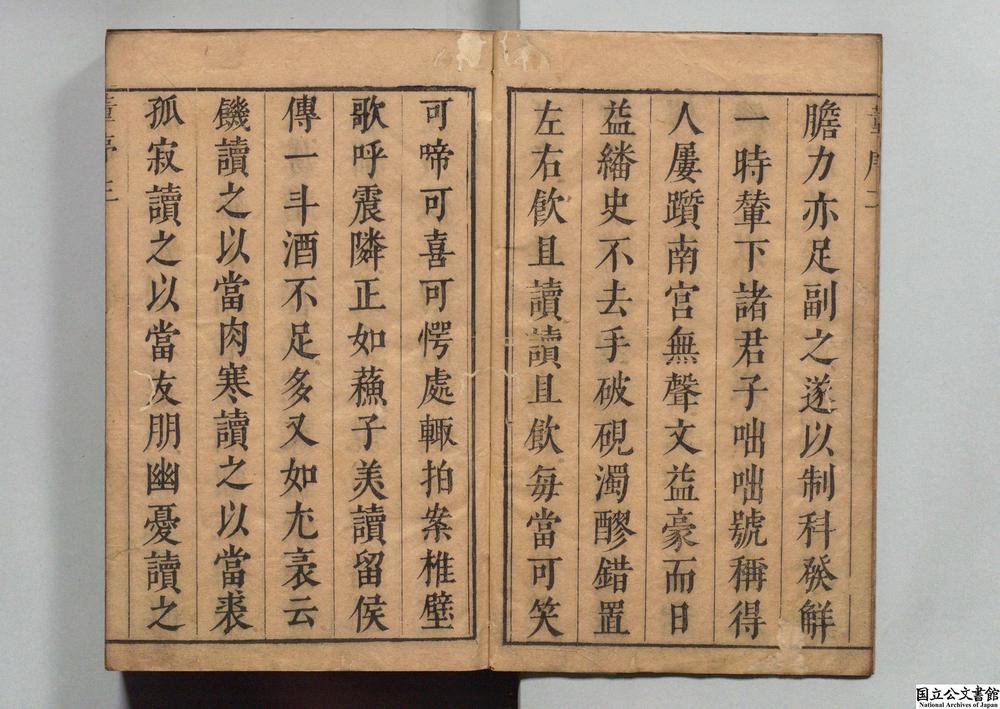 膽力亦足副之遂以制科發解
一時輦下諸君子咄咄號稱得
人屢躓南宫無聲文益豪而日
益繙史不去手破硯濁醪錯置
左右飲且讀讀且飲每當可笑
可啼可喜可愕處輙拍案椎壁
歌呼震隣正如蘓子美讀留侯
傳一斗酒不足多又如尤袤云
饑讀之以當肉寒讀之以當裘
孤寂讀之以當友朋幽憂讀之
国立公文書館
National Archives of Japan